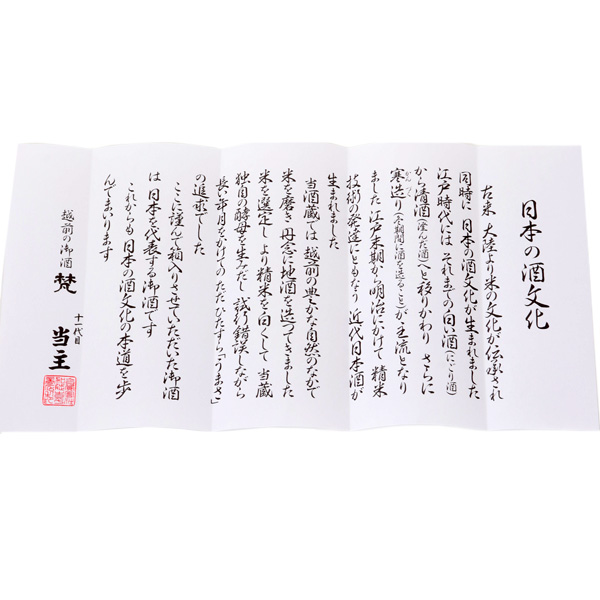 日本の酒文化
古来 大陸より米の文化が伝承され
同時に 日本の酒文化が生まれました
江戸時代には それまでの白い酒(にごり酒)
から清酒(澄んだ酒)へと移りかわり さらに
寒造り(冬期間に酒を造ること)が主流となり
ました 江戸末期から明治にかけて 精米
技術の発達にともなり 近代日本酒が
生まれました
当酒蔵では 越前の豊かな自然のなかで
米を磨き 丹念に地酒を造ってきました
米を選定し より精米を白くして 当蔵
独自の酵母を生みだし 試行錯誤しながら
長い年月をかけての ただひたすら「うまさ」
の追求でした
ここに謹んで箱入りさせていただいた御酒
は 日本を代表する御酒です
これからも 日本の酒文化の本道を歩
んでまいります
越前の御酒 梵 十一代目 当主